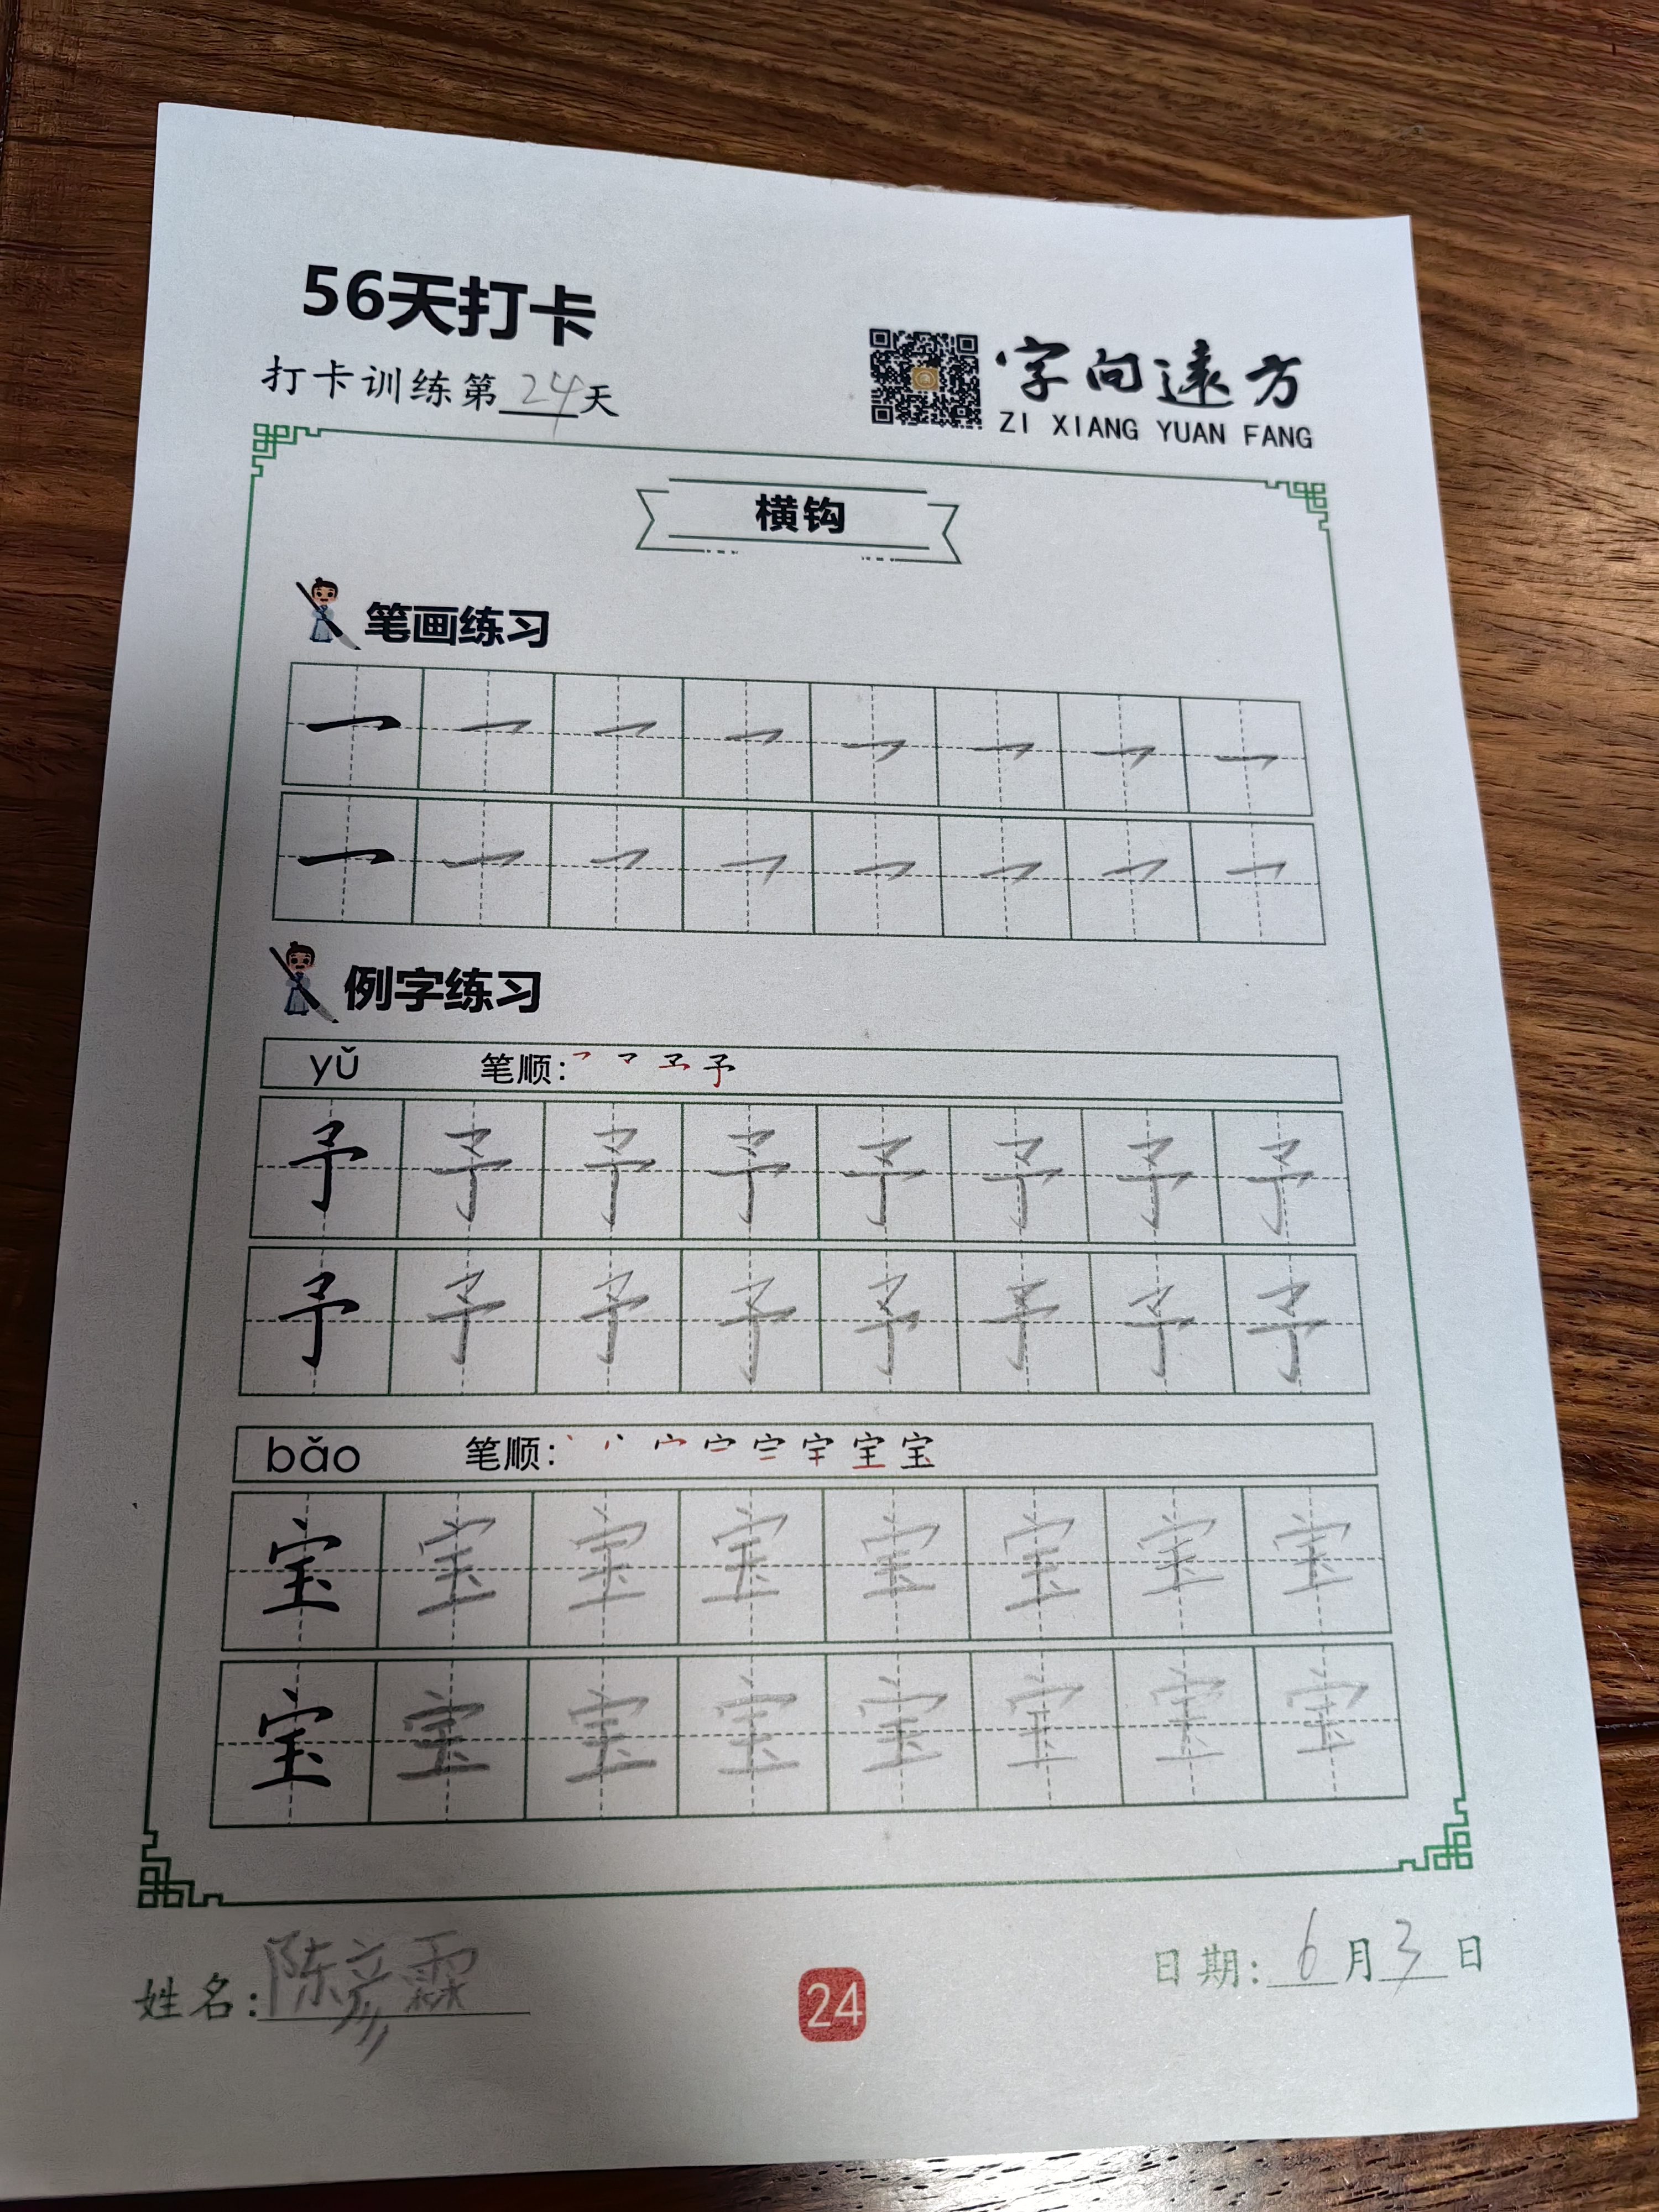 56天打卡
打卡训练第24天
字向遠方
ZI XIANG YUAN FANG
横钩
笔画练习
例字练习
yǔ 笔顺: 予
予 予 予 予 予 予 予 予
予 予 予 予 予 予 予 予
bǎo 笔顺: 丶 丷 宀 宀 宀 宇 宝 宝
宝 宝 宝 宝 宝 宝 宝 宝
宝 宝 宝 宝 宝 宝 宝 宝
姓名: 陈彦霖
24
日期: 6月3日